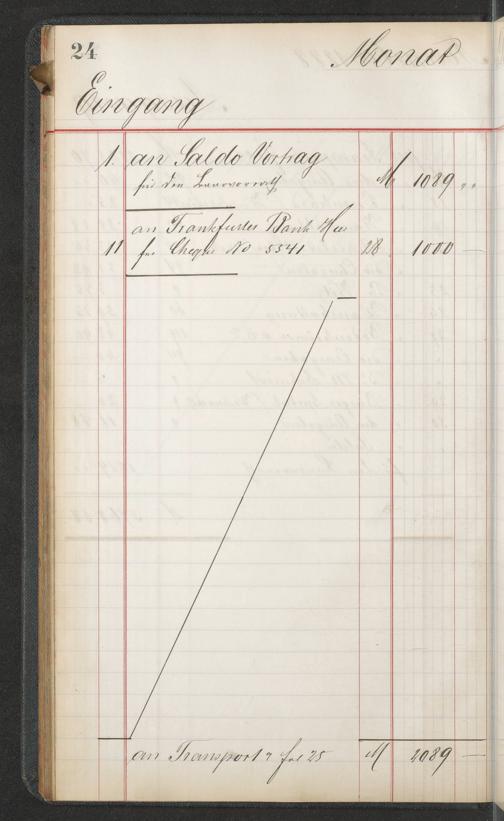 24
Monat
Eingang
1. an Saldo Vortrag
für den Baarvorrath M 1089 "
an Frankfurter Bank
11 für Cheque No 5541 28 1000 —
an Transport a fol 25 M 2089 —